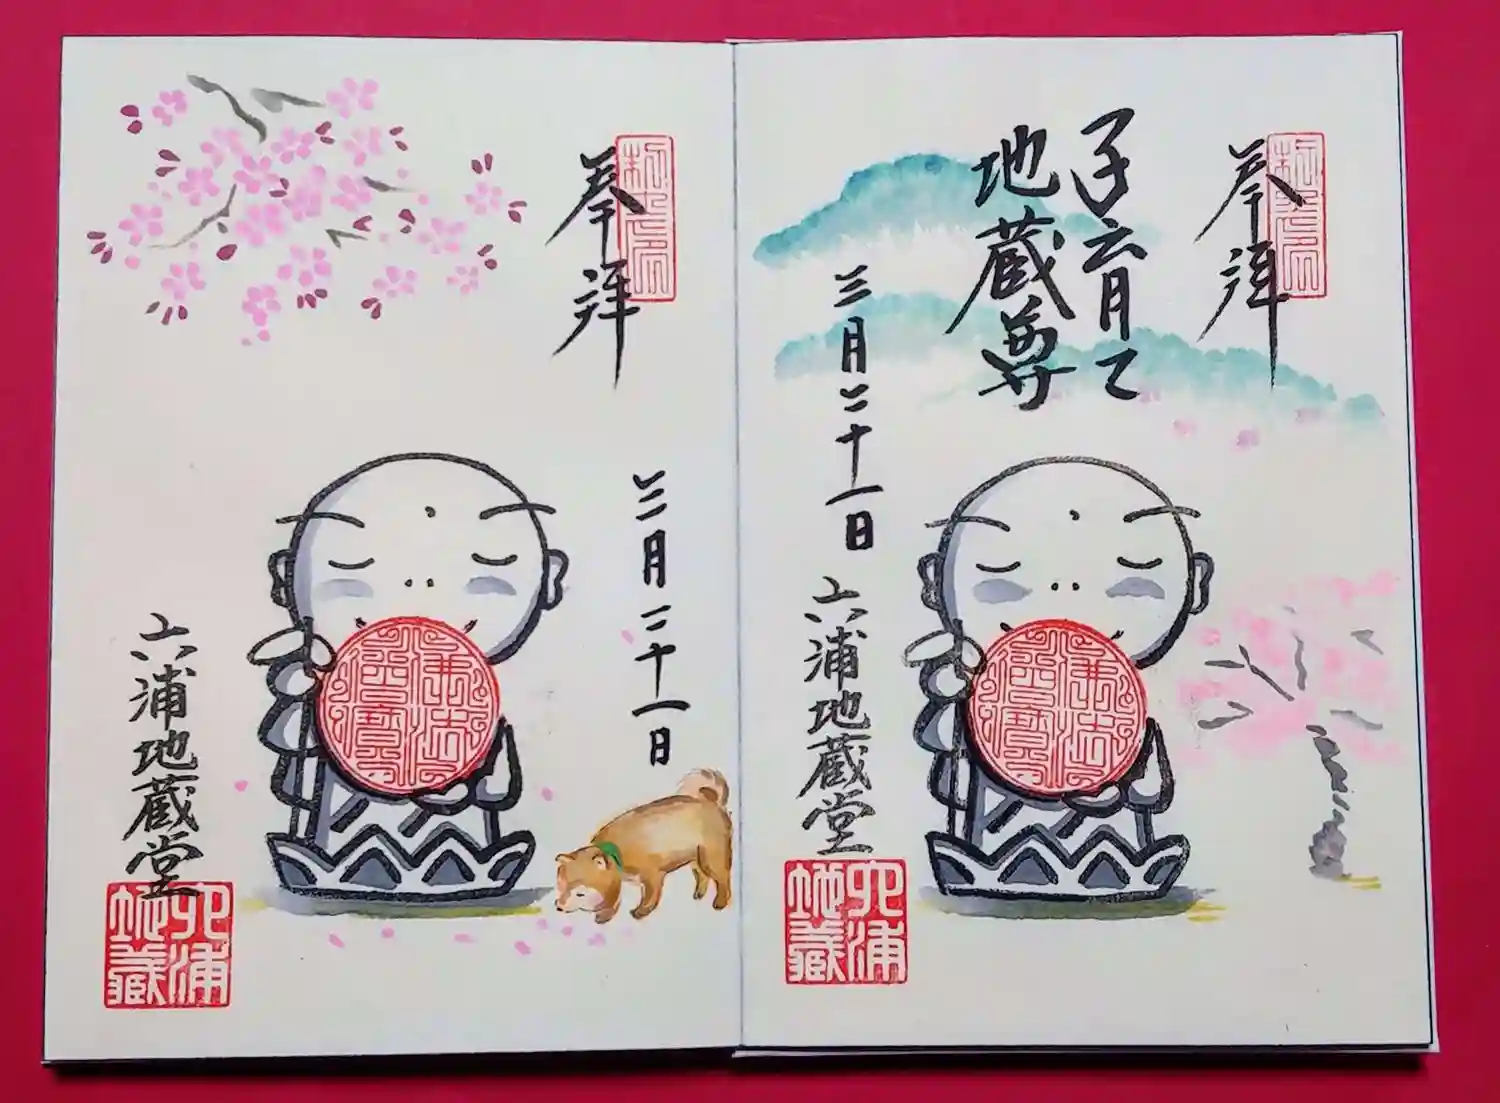 奉拝
子育て
地蔵尊
三月二十一日
六浦地蔵堂
佛法僧寶
六浦地蔵
奉拝
三月二十一日
六浦地蔵堂
佛法僧寶
六浦地蔵